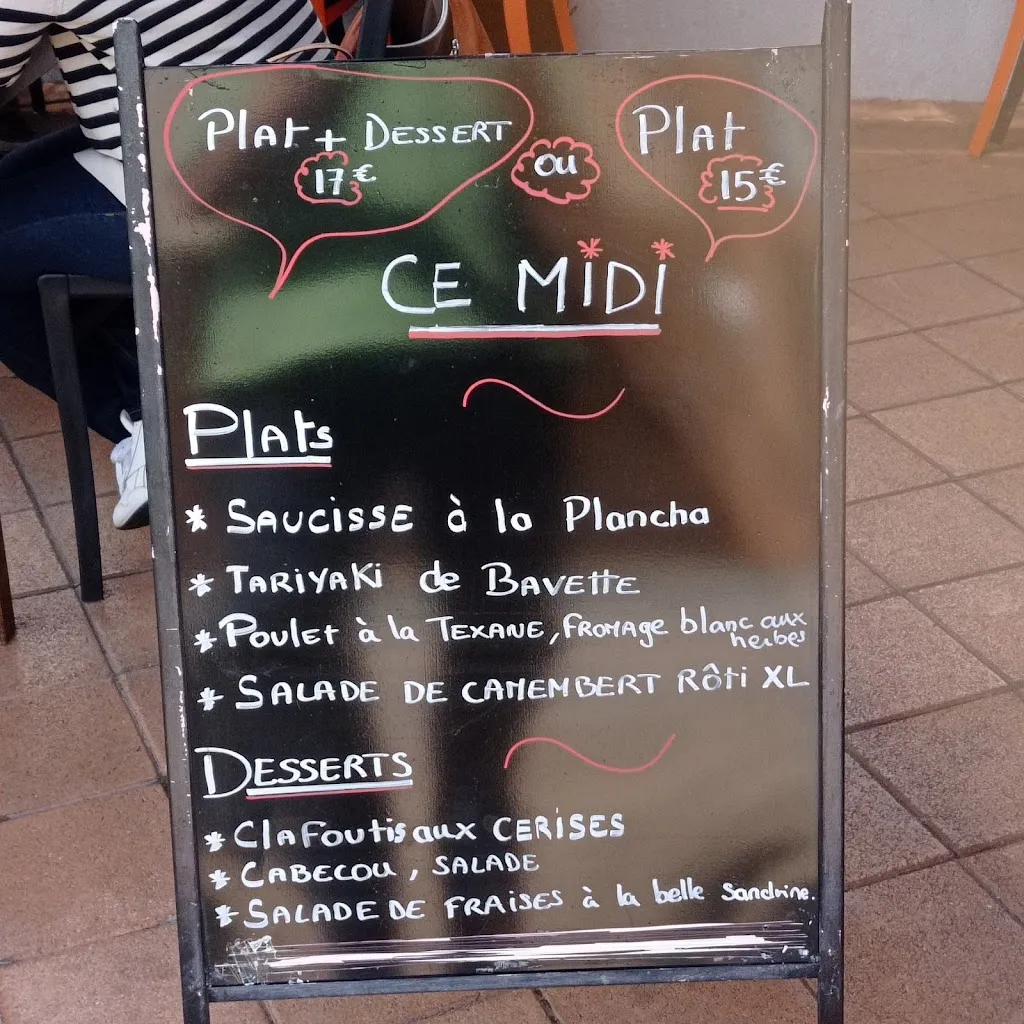 Plat + Dessert
17€
ou
Plat
15€
CE MIDI
Plats
* SAUCISSE à la Plancha
* TARIYAKI de BAVEttE
* Poulet à la TEXANE, fromage blanc aux
herbes
* SALADE DE CAMEMBERT Rôti XL
DESSERTS
* Clafoutis aux CERISES
* CABECOU, SALADE
* SALADE DE FRAISES à la belle Sandrine.